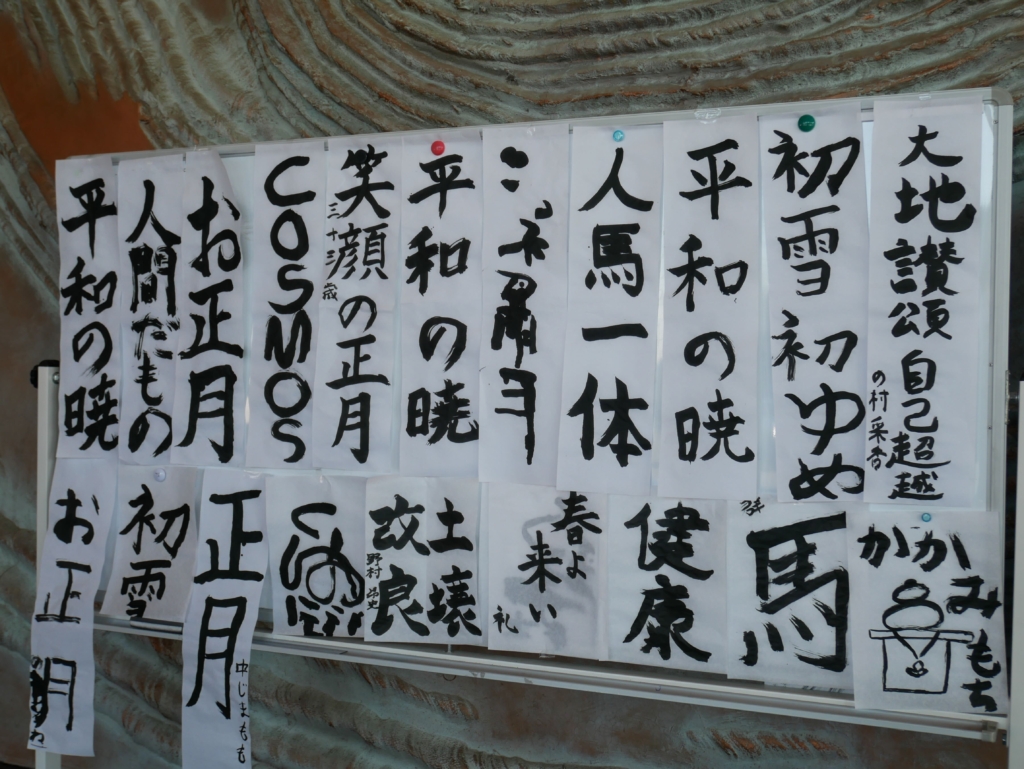 大地讃頌 自己超越
の村采香
初雪初ゆめ
平和の暁
人馬一体
平和の暁
笑顔の正月
三十三歳
COSMOS
お正月
人間だもの
平和の暁
かがみもち
馬
健康
春よ
来い
礼
土壌
改良
野村
正月
中じまもも
初雪
お正月